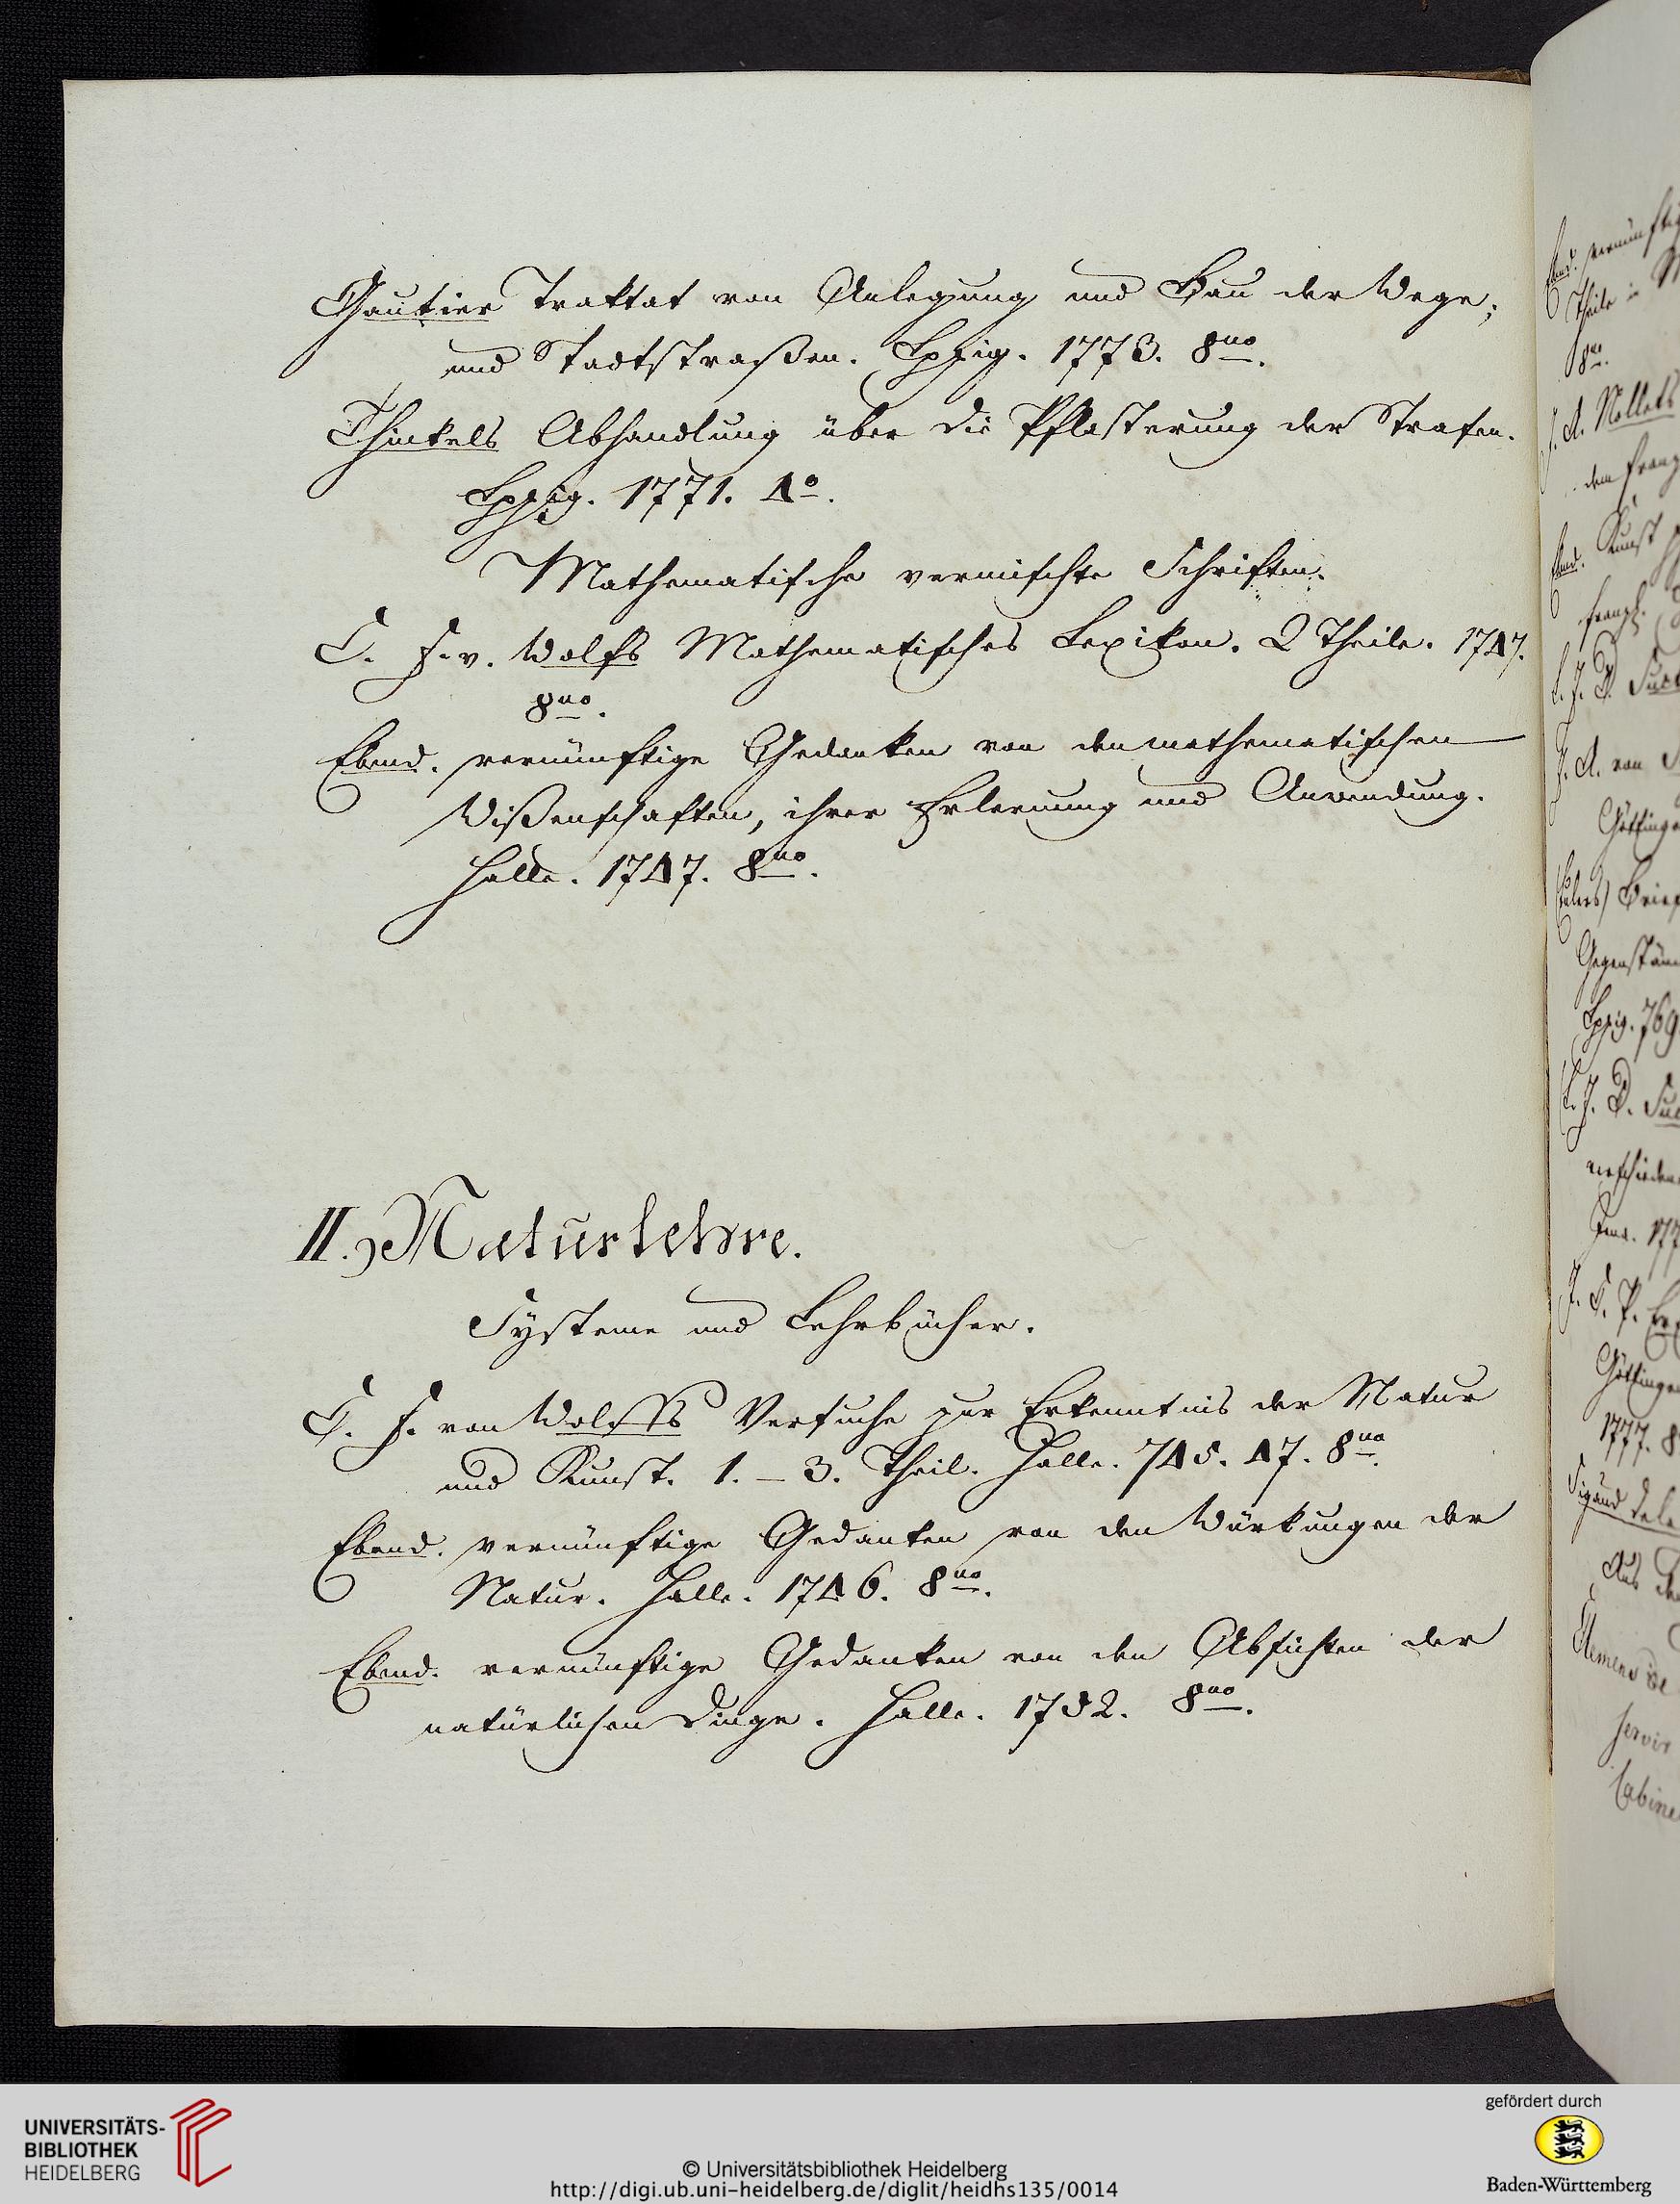 Gautier Traktat von Anlegung und Bau der Wege,
und Stadtstraßen. Lpzig. 1773. 8no.
Abhandlung über die Pflasterung der Strasen.
Lpzig. 1771. 4o.
Mathematische vermischte Schriften.
C. F. v. Wolfs Mathematisches Lexikon. 2 Theile. 1747.
8no.
Ebend. vernünftige Gedanken von den mathematischen
Wißenschaften, ihrer Erlernung und Anwendung.
Halle. 1747. 8no.
II. Naturlehre.
Systeme und Lehrbücher.
C. F. von Wolffs Versuche zur Erkenntnis der Natur
und Kunst. 1. – 3. Theil. Halle. 745. 47. 8no.
Ebend. vernünftige Gedanken von den Würkungen der
Natur. Halle. 1746. 8no.
Ebend. vernünftige Gedanken von den Absichten der
natürlichen Dinge. Halle. 1752. 8no.
Ebend.
Theile in
8no.
J. A. Nollets
dem Franz
Ebend. Kunst
franz.
J. A. von
Göttinge
Eulers) Brief
Gegenstän
Lpzig. 769
verschieden
Jena. 177
J. C. P. Erx
Göttingen
1777. 8
Sigaud dela
Aus dem
servir
Cabine
UNIVERSITÄTS-
BIBLIOTHEK
HEIDELBERG
© Universitätsbibliothek Heidelberg
http://digi.ub.uni-heidelberg.de/diglit/heidhs135/0014
gefördert durch
Baden-Württemberg